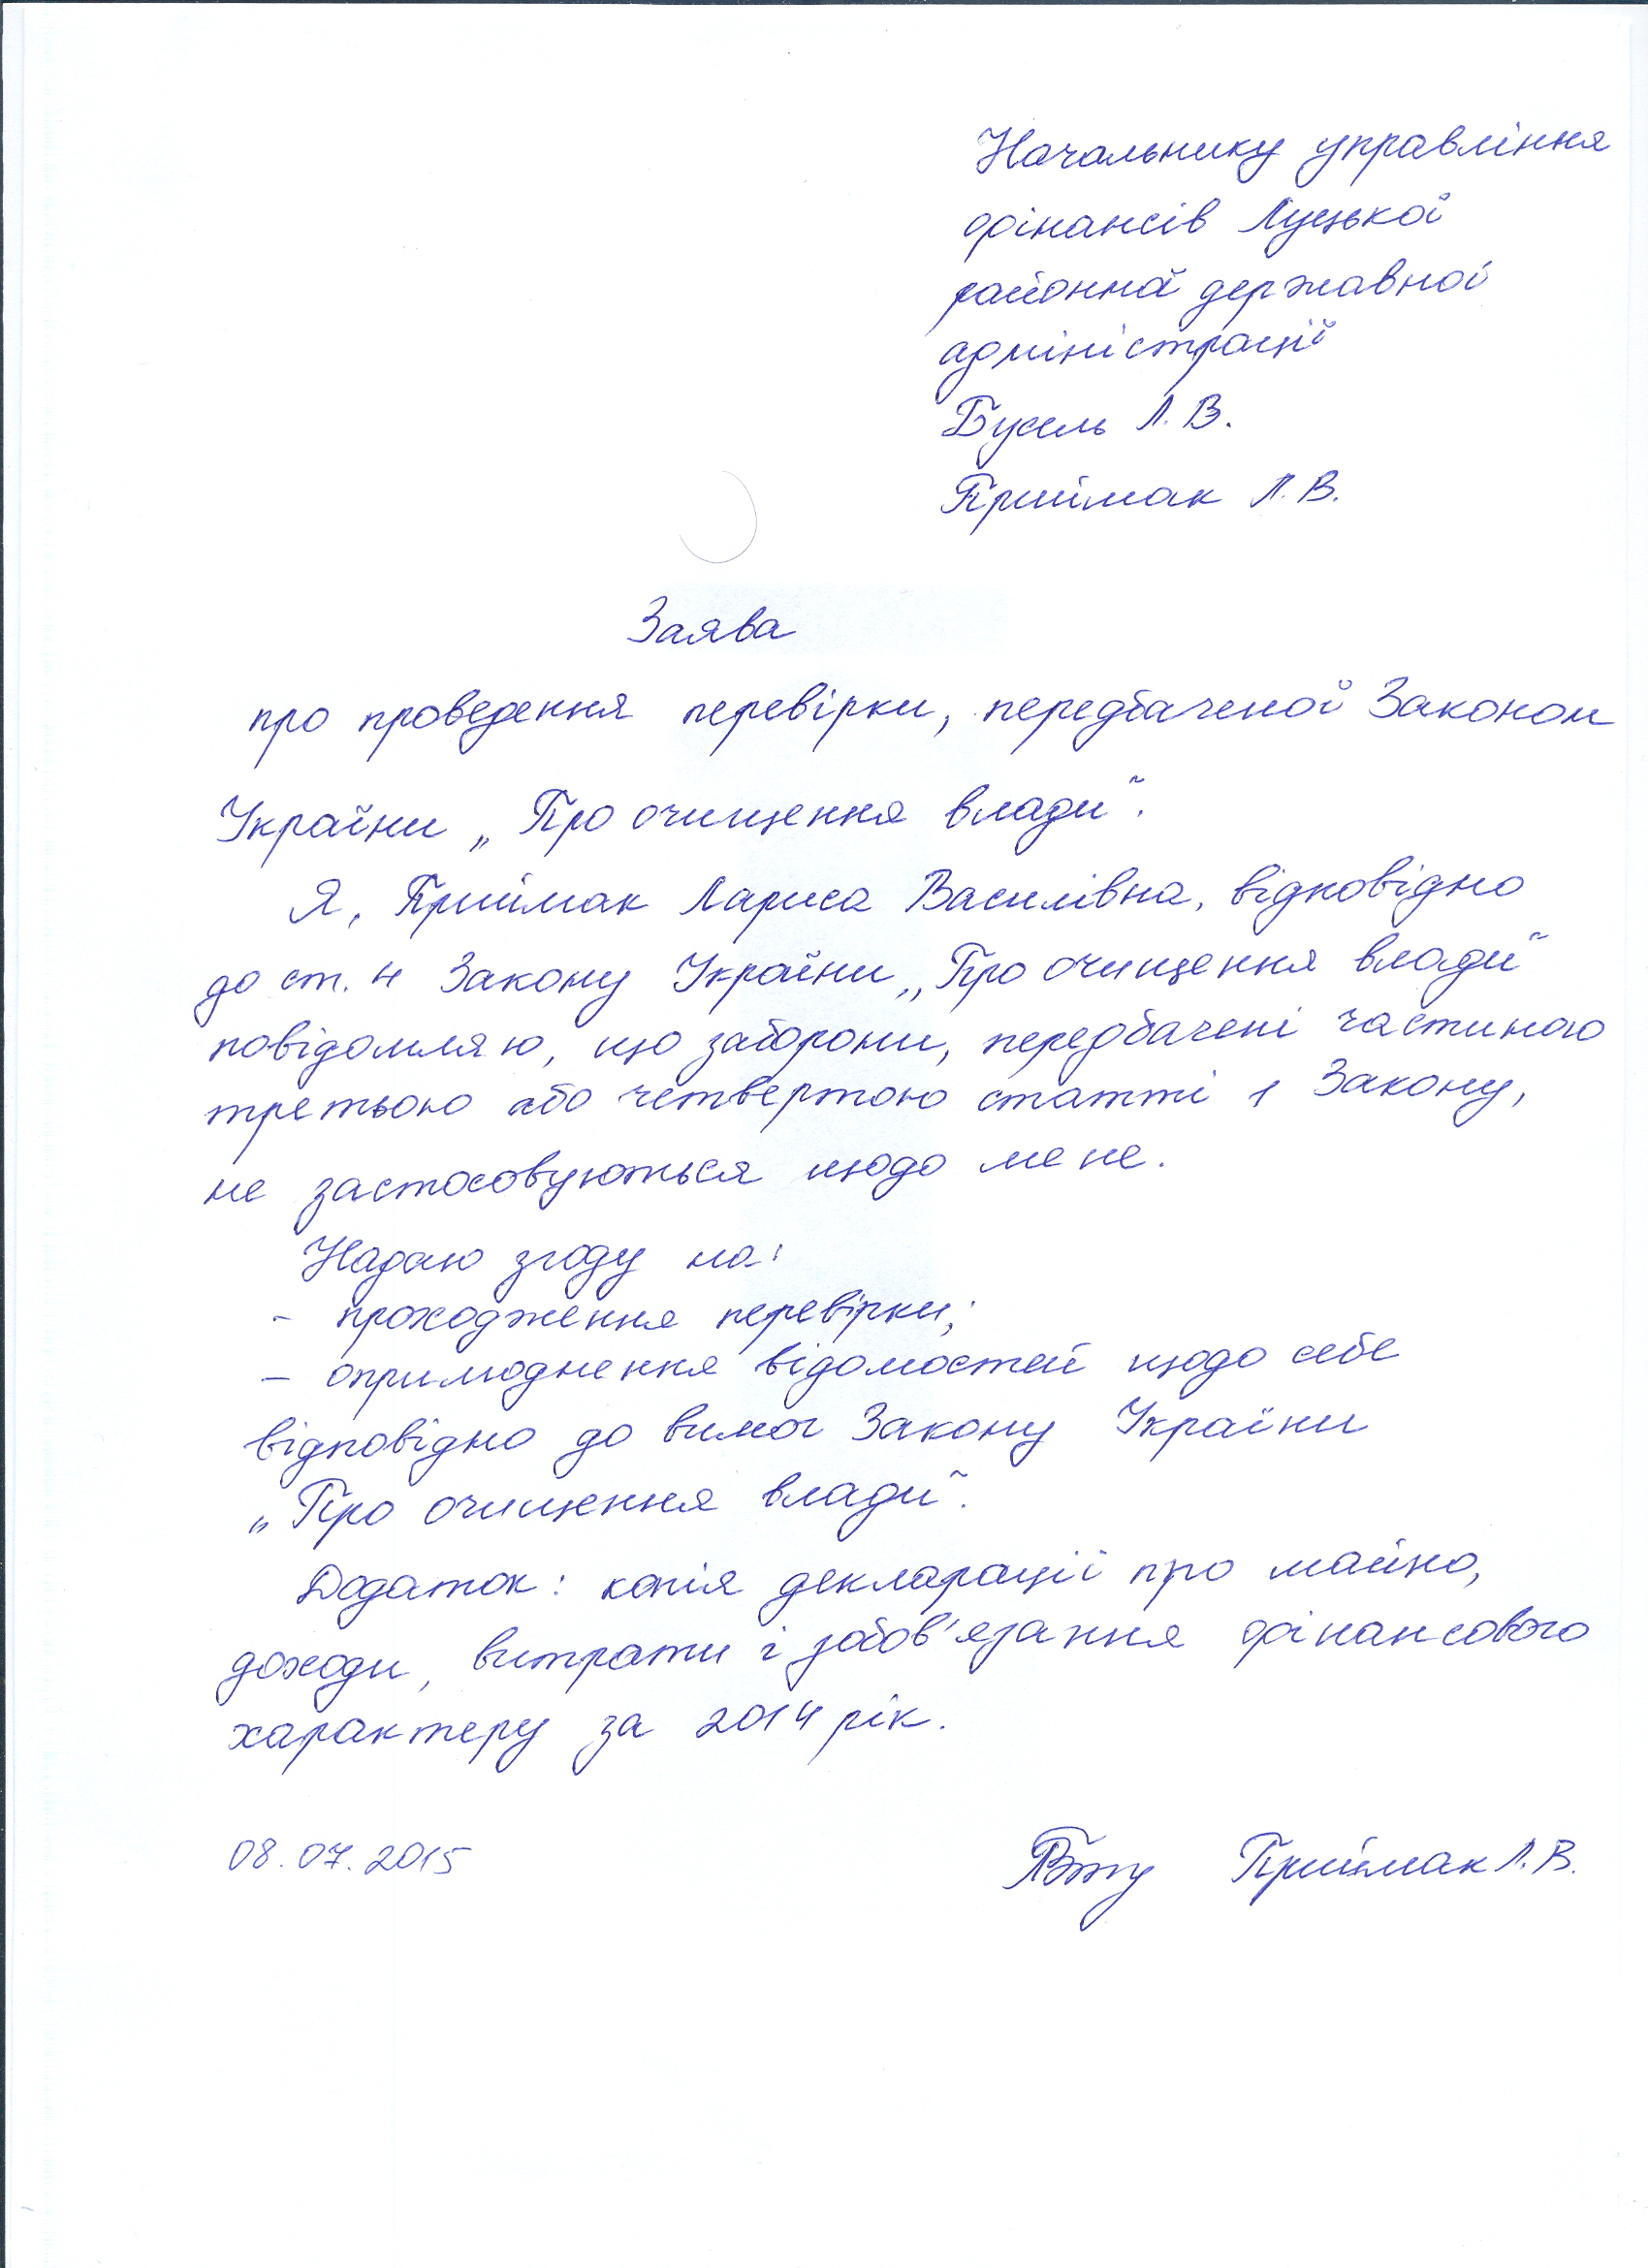 Начальнику управління
фінансів Луцької
районної державної
адміністрації
Бусель Л.В.
Приймак Л.В.
Заява
про проведення перевірки, передбаченої Законом
України „Про очищення влади".
Я, Приймак Лариса Василівна, відповідно
до ст. 4 Закону України „Про очищення влади"
повідомляю, що заборони, передбачені частиною
третьою або четвертою статті 1 Закону,
не застосовуються щодо мене.
Надаю згоду на:
- проходження перевірки;
- оприлюднення відомостей щодо себе
відповідно до вимог Закону України
„Про очищення влади".
Додаток: копія декларації про майно,
доходи, витрати і зобов'язання фінансового
характеру за 2014 рік.
08.07.2015 Приймак Л.В.